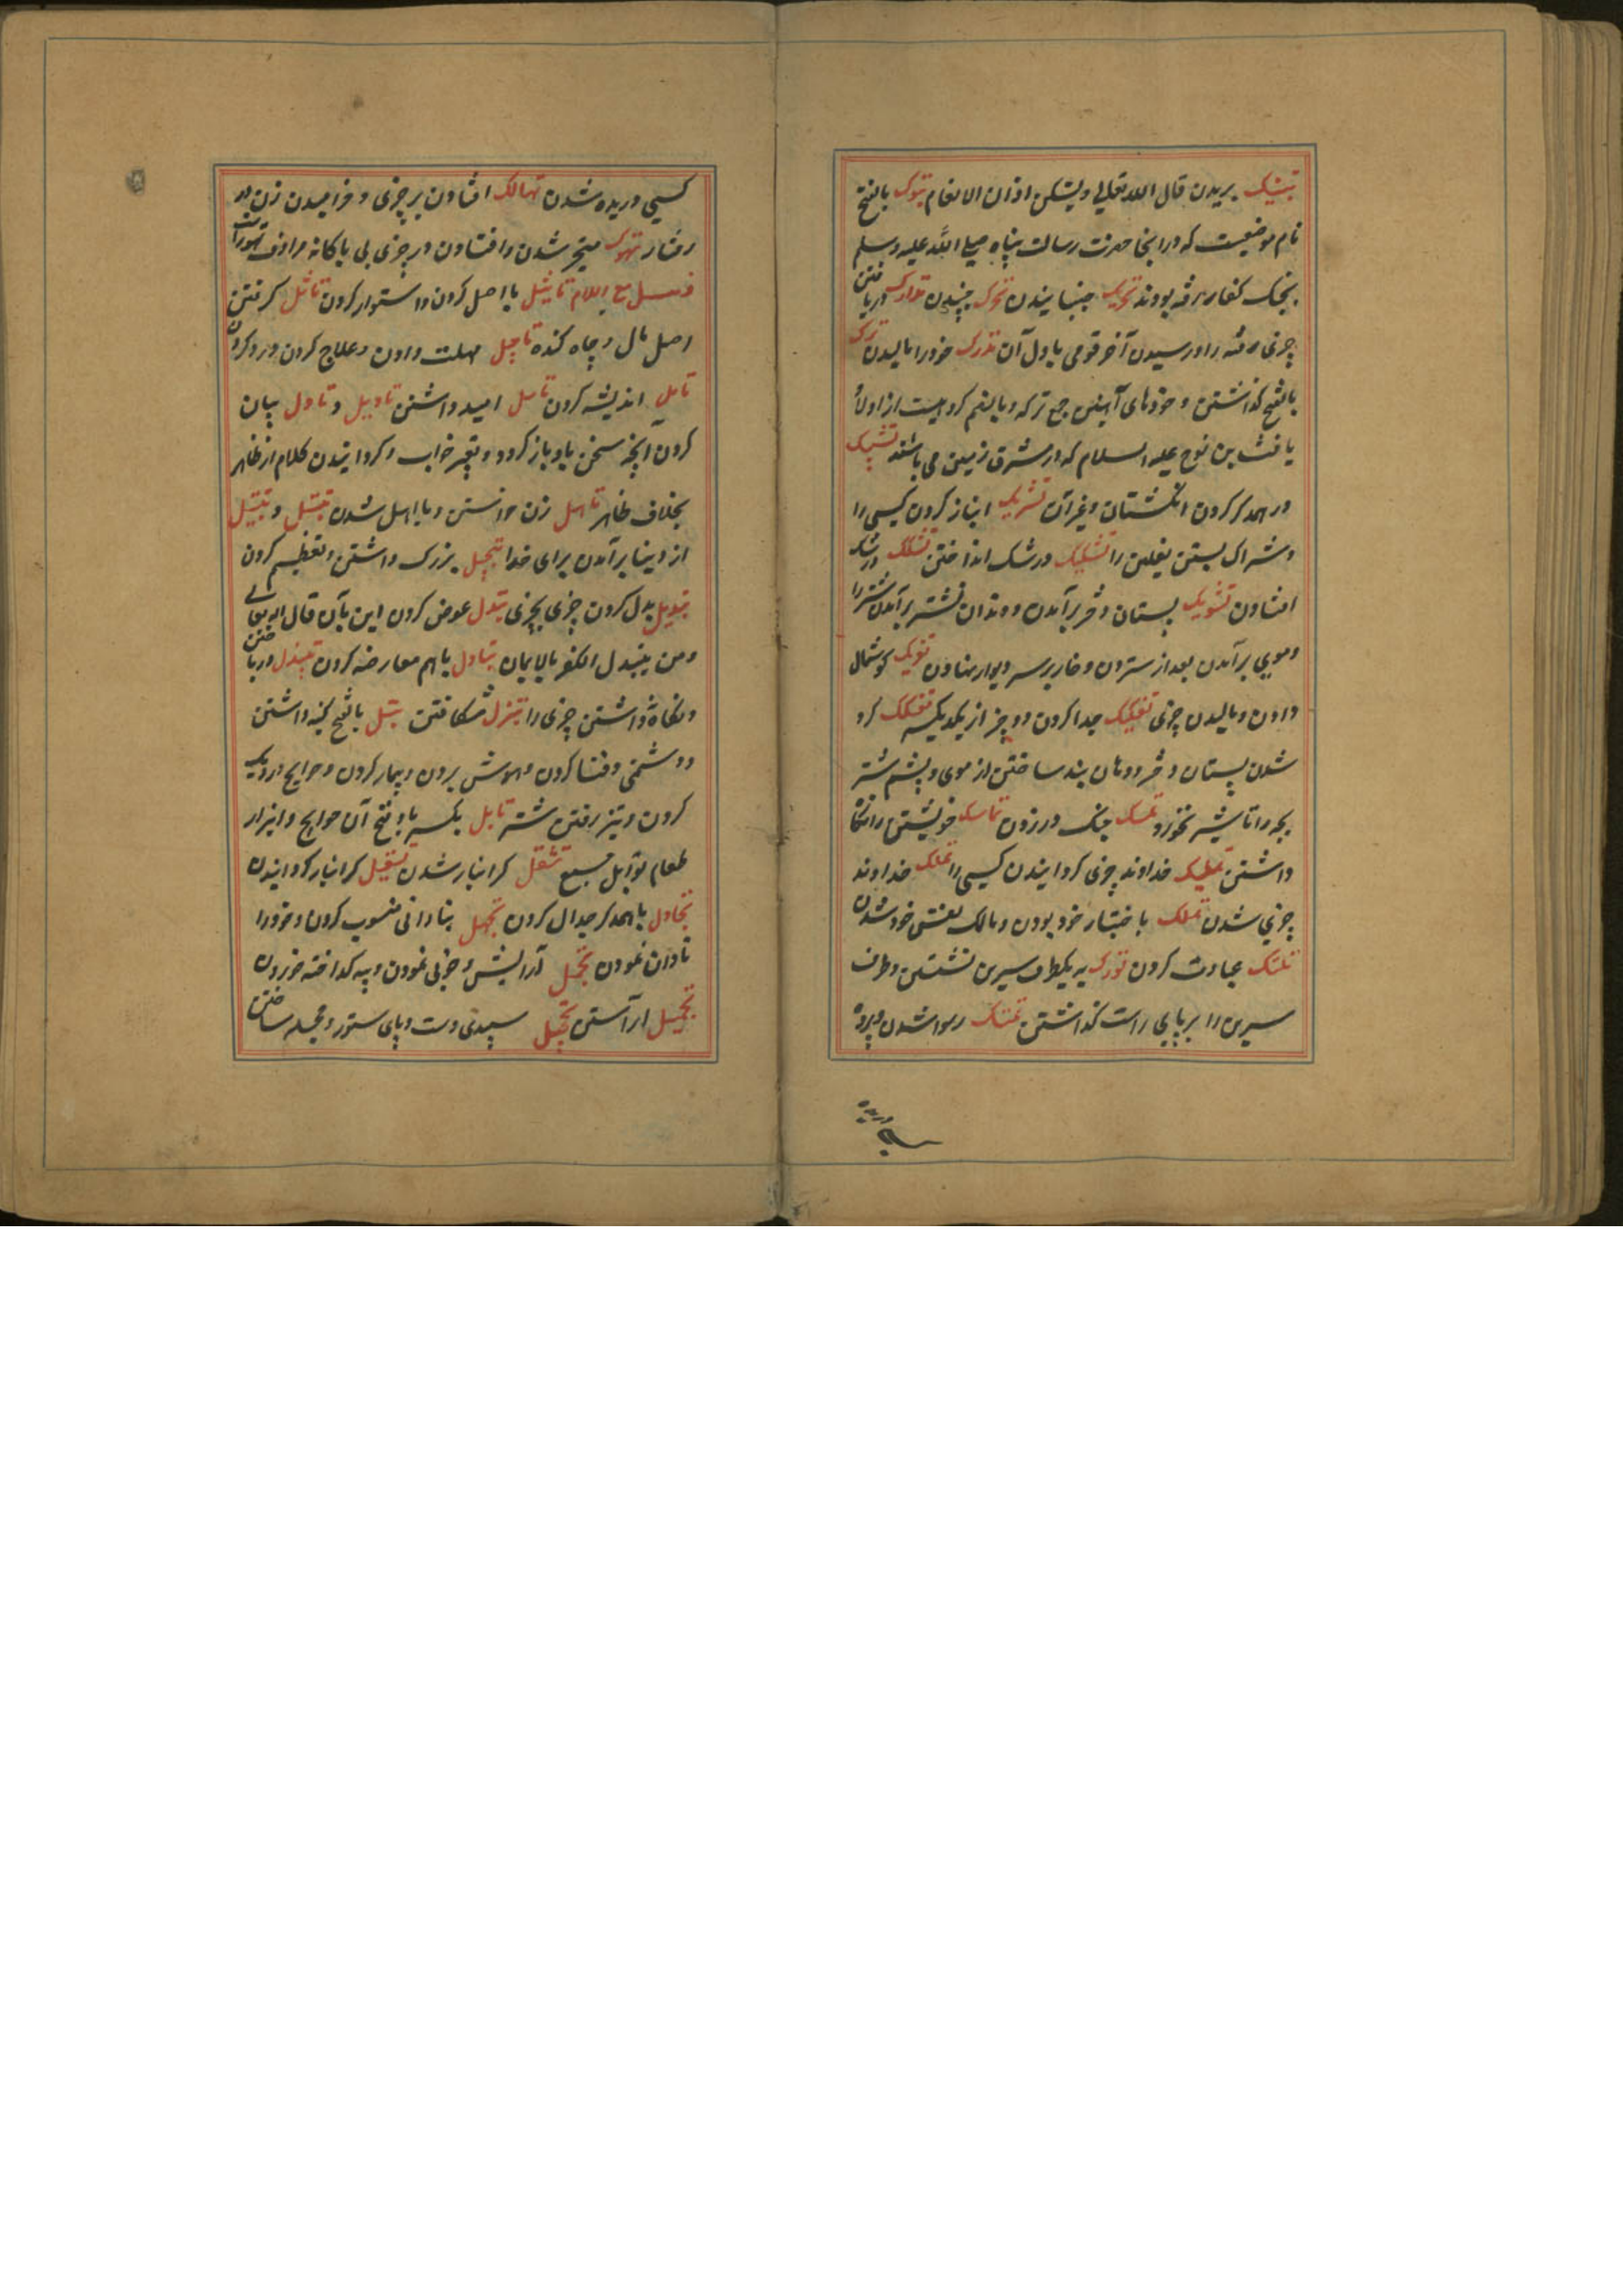 تبتیک بریدن قال الله تعالی ویتبتکن اذان الانعام تبوک بالفتح
نام موضعیست که در انجا حضرت رسالت پناه صلی الله علیه وسلم
بجنک کفار رفته بودند تحریک جنبانیدن تحرک جنبیدن تدارک دریافتن
چیزی رفته را و رسیدن آخر قومی باول آن تدرک خود را مالیدن ترک
بالفتح کذاشتن و خودهای آهنین جمع ترکه و بالضم کروهیست از اولاد
یافث بن نوح علیه السلام که در مشرق زمین می باشند تشبیک
در همدکر کردن انکشتان و غیر آن تشریک انباز کردن کسی را
و شراک بستن نعلین را تشکیک در شک انداختن تشکک در شک
افتادن تشویک پستان دختر برآمدن و دندان شتر برآمدن شتر را
و موی برآمدن بعد از ستردن و خار بر سر دیوار نهادن کوشمال
دادن و مالیدن چیزی تفکیک جدا کردن دو چیز از یکدیکر تفلک کرد
شدن پستان دختر و دهان بند ساختن از موی و پشم شتر
بچه را تا شیر نخورد تمسک چنک در زدن تماسک خویشتن را نکاه
داشتن تملیک خداوند چیزی کردانیدن کسی را تملک خداوند
چیزی شدن تملک باختیار خود بودن و مالک نفس خود شدن
تنسک عبادت کردن تورک به یکطرف سرین نشستن و طرف
سرین را بر پای راست کذاشتن تهتک رسوا شدن و پرده
کسی دریده شدن تهالک افتادن بر چیزی و خرامیدن زن در
رفتار تهوک متحیر شدن و افتادن در چیزی بی باکانه مرادف تهور است
فصل مع اللام تاثیل با اصل کردن و استوار کردن تاثل کرفتن
اصل مال و چاه کنده تاجیل مهلت دادن و علاج کردن درد کردن
تامل اندیشه کردن تامیل امید داشتن تاویل و تاول بیان
کردن آنچه سخن باو باز کردد و تعبیر خواب و کردانیدن کلام از ظاهر
بخلاف ظاهر تاهل زن خواستن و با اهل شدن تبتل و تبتیل
از دنیا بر آمدن برای خدا تبجیل بزرک داشتن و تعظیم کردن
تبدیل بدل کردن چیزی بچیزی تبدل عوض کردن این بآن قال الله تعالی
و من یتبدل الکفر بالایمان تبادل باهم معارضه کردن تبذل درباختن
و نکاه داشتن چیزی را تبزل شکافتن تبل بالفتح کینه داشتن
و دشمنی و فنا کردن و هوش بردن و بیمار کردن و حوایج در دیک
کردن و تیز رفتن شتر تابل بکسر باو فتح آن حوایج و ابزار
طعام توابل جمع تثقل کرانبار شدن تثقیل کرانبار کردانیدن
تجادل با همدکر جدال کردن تجهیل بنادانی منسوب کردن و خود را
نادان نمودن تجمل آرایش و خوبی نمودن و پیه کداخته خوردن
تجمیل آراستن تحجیل سپیدی دست و پای ستور و حجله ساختن